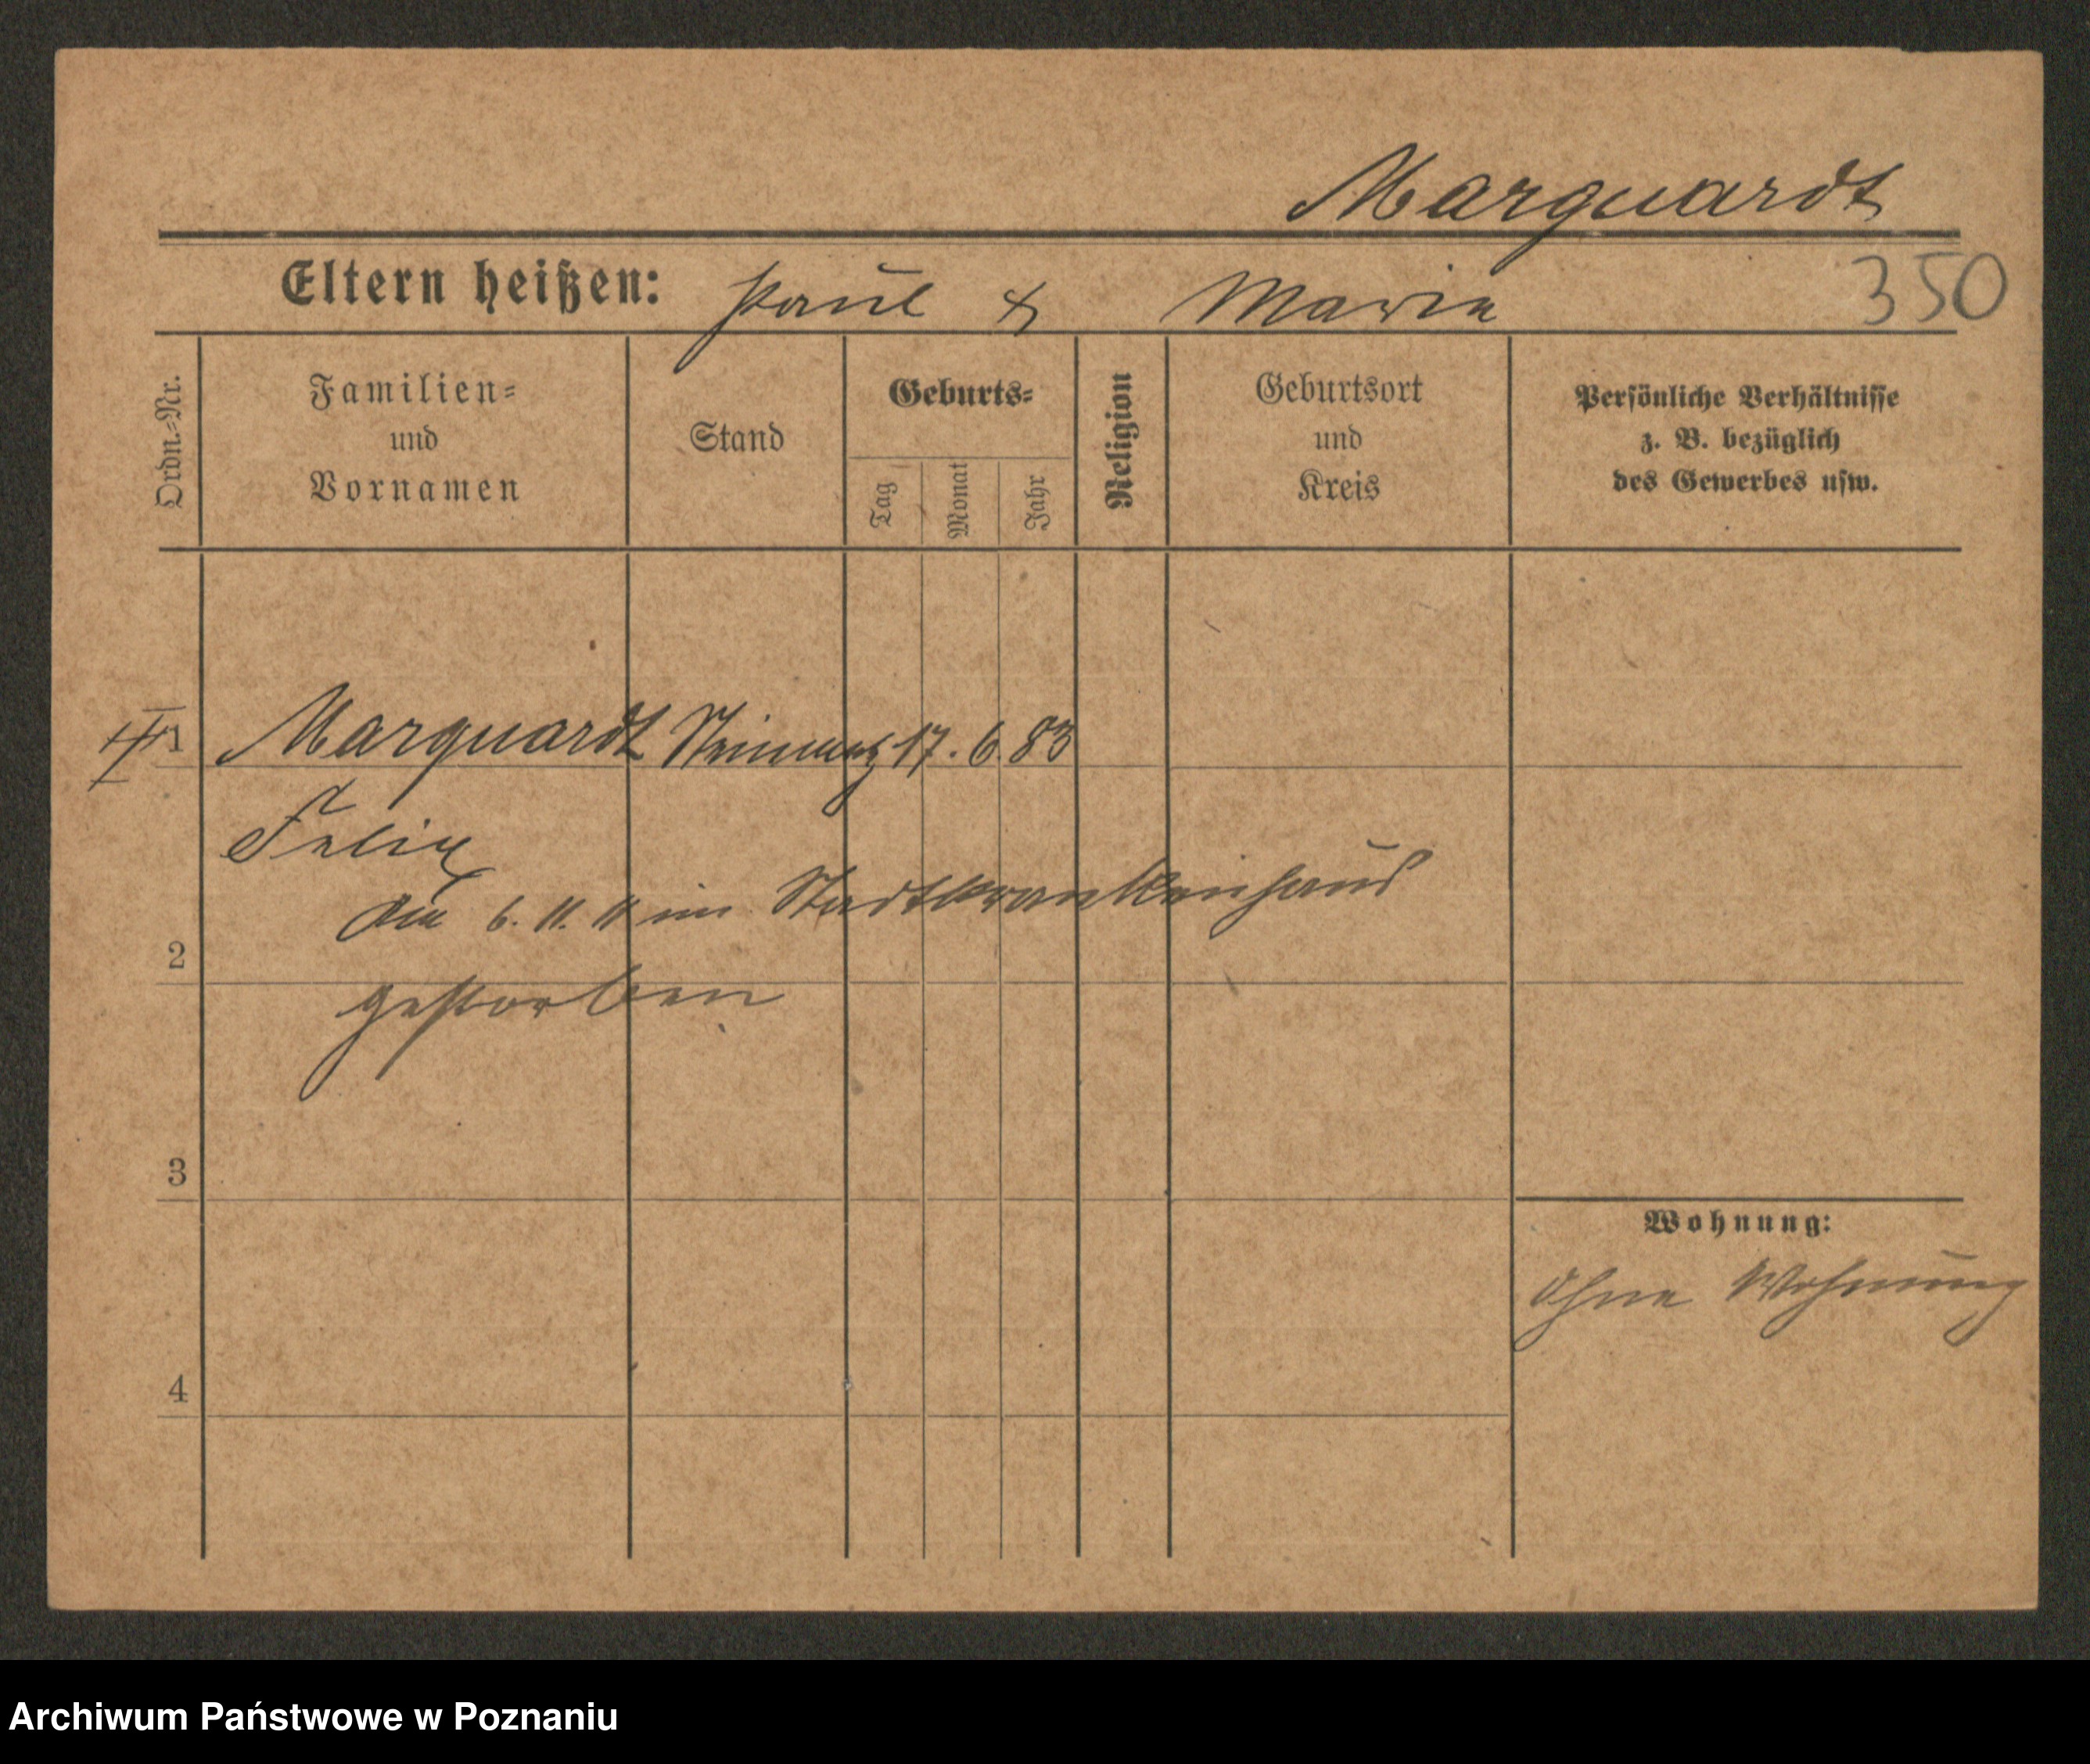 Marquardt
Eltern heißen: Paul & Maria
350
Ordn.-Nr.
Familien-
und
Vornamen
Stand
Geburts-
Tag
Monat
Jahr
Religion
Geburtsort
und
Kreis
Persönliche Verhältnisse
z. B. bezüglich
des Gewerbes usw.
1 Marquardt Steinmetz 17. 6. 83
Felix
Am 6. 11. 11 im Stadtkrankenhaus
2
gestorben
3
Wohnung:
Ohne Wohnung
4
Archiwum Państwowe w Poznaniu